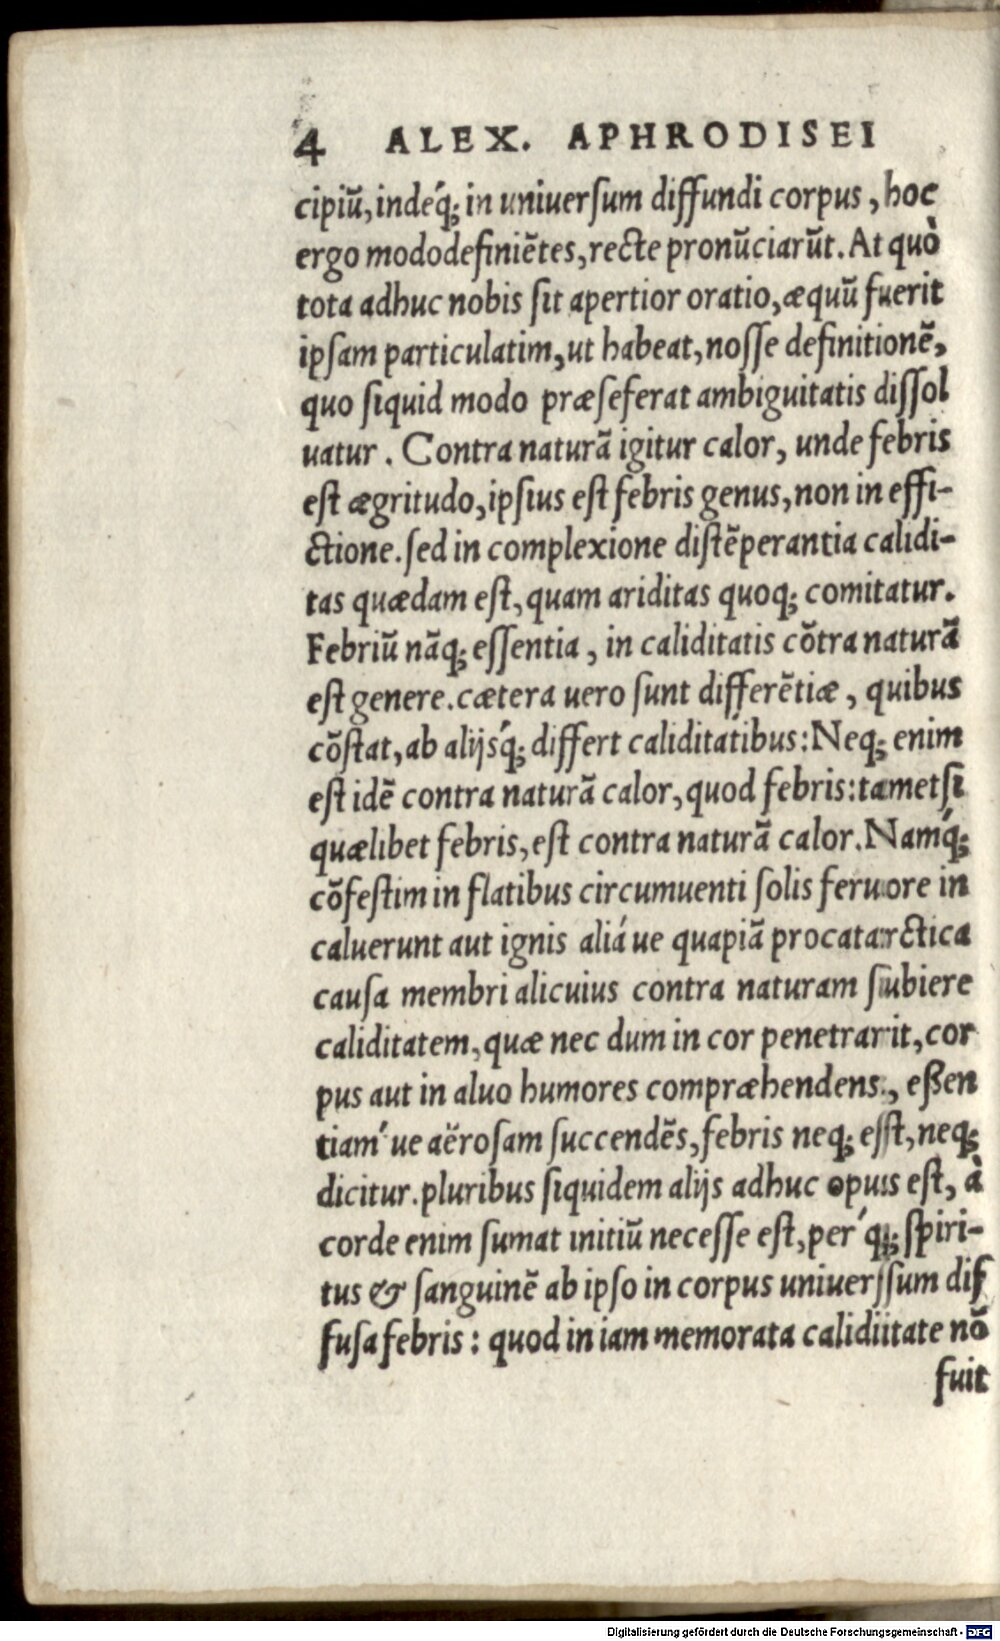 4 ALEX. APHRODISEI
cipiũ, indéq; in uniuersum diffundi corpus, hoc
ergo modo definiẽtes, recte pronũciarũt. At quò
tota adhuc nobis sit apertior oratio, æquũ fuerit
ipsam particulatim, ut habeat, nosse definitionẽ,
quo siquid modo præseferat ambiguitatis dissol
uatur. Contra naturã igitur calor, unde febris
est ægritudo, ipsius est febris genus, non in effi-
ctione. sed in complexione distẽperantia calidi-
tas quædam est, quam ariditas quoq; comitatur.
Febriũ nãq; essentia, in caliditatis cõtra naturã
est genere. cætera uero sunt differẽtiæ, quibus
cõstat, ab alijsq́; differt caliditatibus: Neq; enim
est idẽ contra naturã calor, quod febris: tametsi
quælibet febris, est contra naturã calor. Namq́;
cõfestim in flatibus circumuenti solis feruore in
caluerunt aut ignis aliá ue quapiã procatarctica
causa membri alicuius contra naturam subiere
caliditatem, quæ nec dum in cor penetrarit, cor
pus aut in aluo humores compræhendens, eßen
tiam' ue aërosam succendẽs, febris neq; est, neq;
dicitur. pluribus siquidem alijs adhuc opus est, à
corde enim sumat initiũ necesse est, per q́; spiri-
tus & sanguinẽ ab ipso in corpus uniuersum dif
fusa febris: quod in iam memorata caliditate nõ
fuit
Digitalisierung gefördert durch die Deutsche Forschungsgemeinschaft - DFG